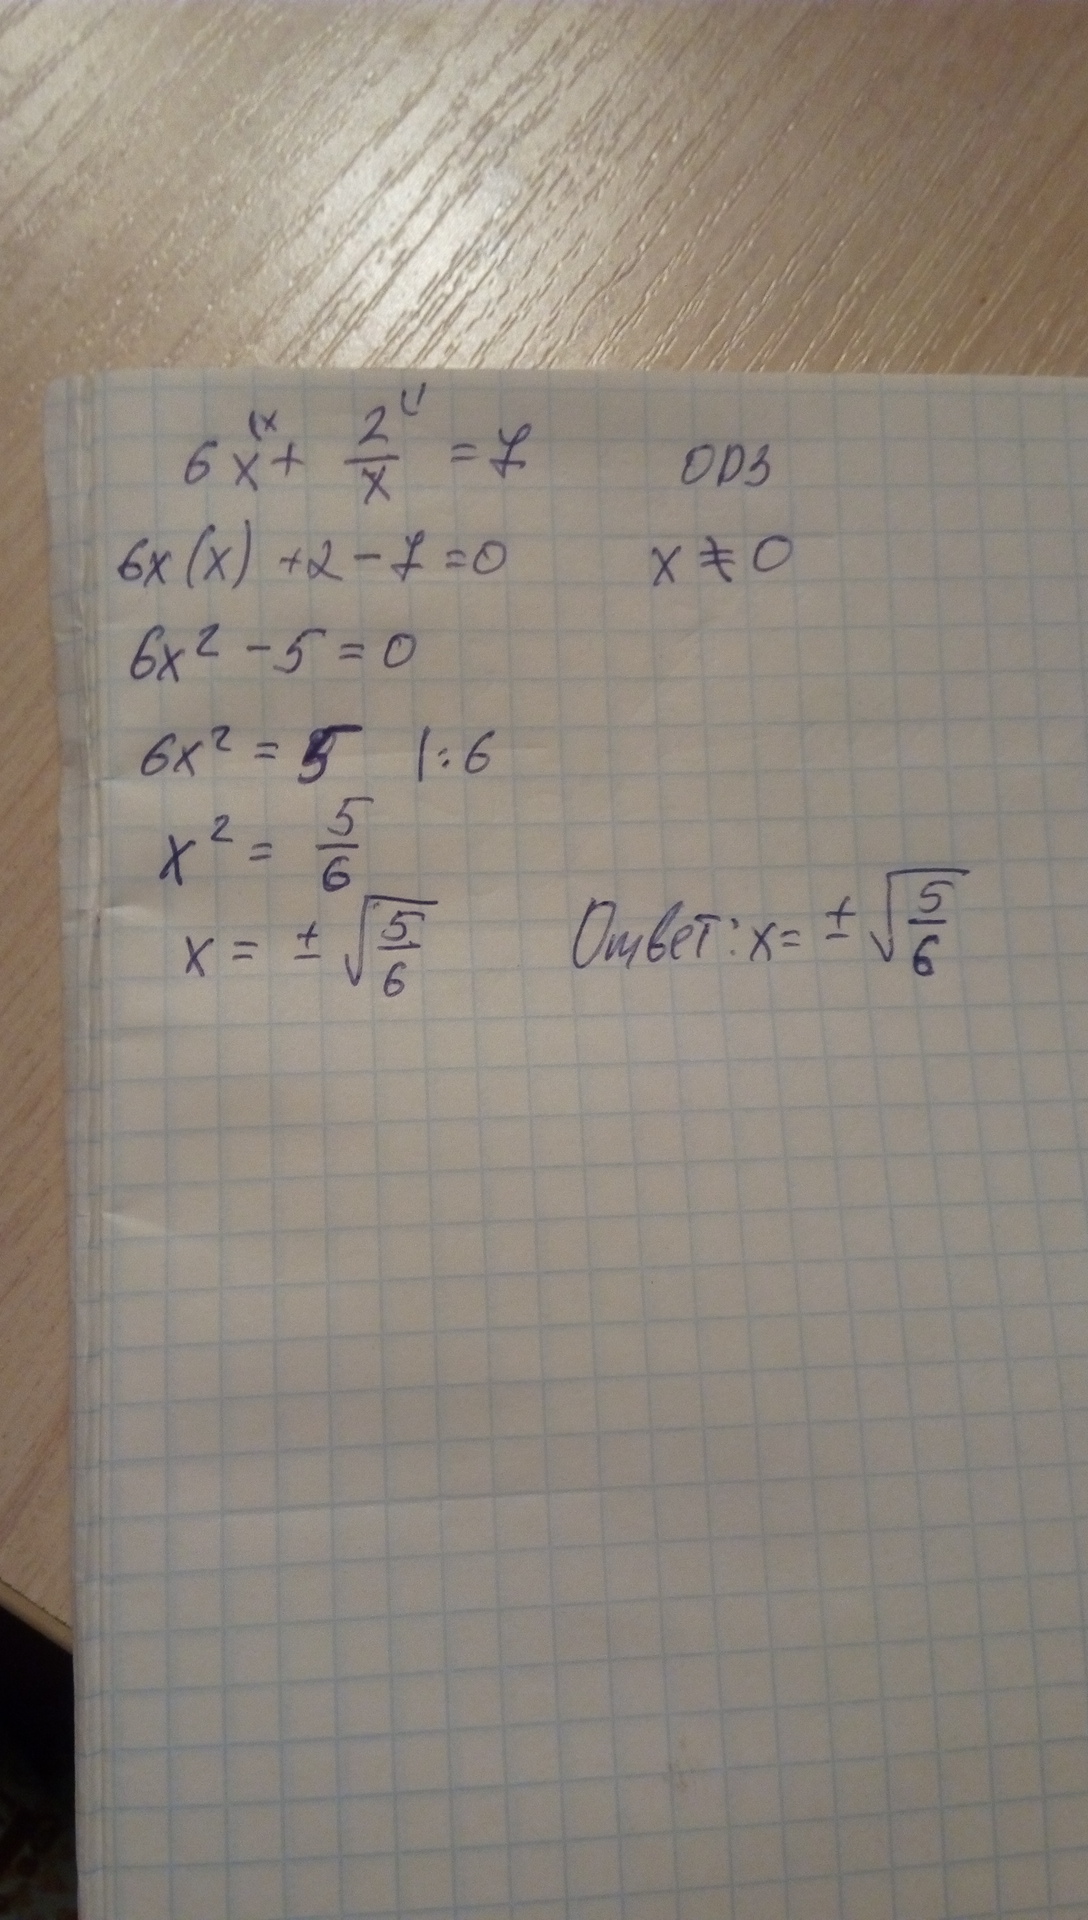 6x + 2/x = 7 ОДЗ
6x(x) + 2 - 7 = 0 x ≠ 0
6x² - 5 = 0
6x² = 5 |:6
x² = 5/6
x = ± √(5/6) Ответ: x = ± √(5/6)